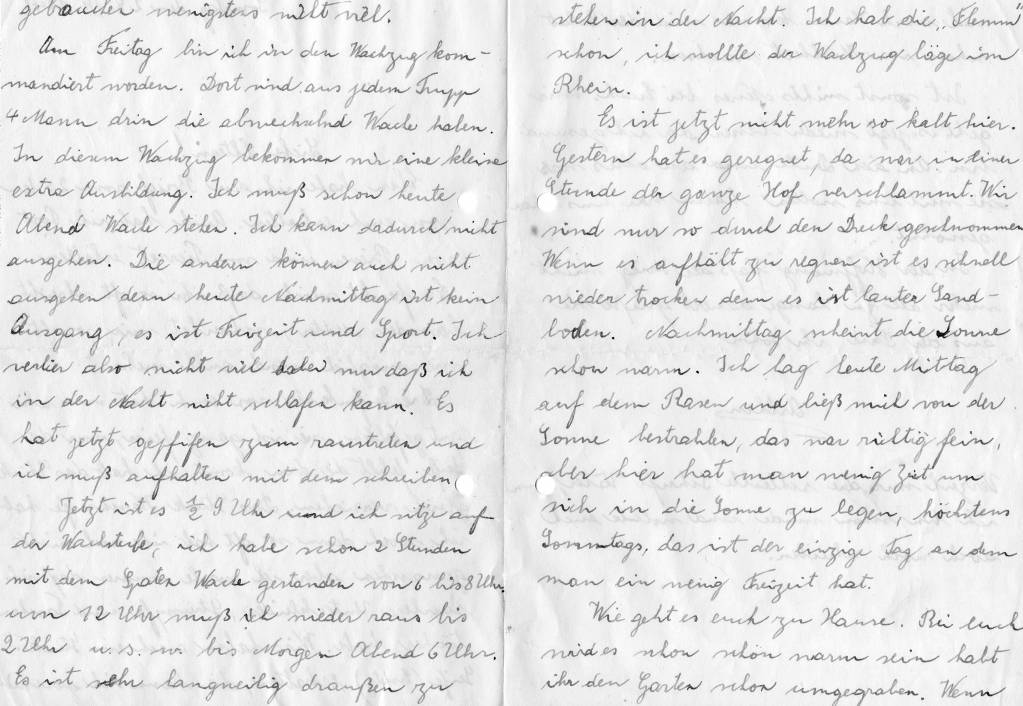 gebraucht wenigstens nicht viel.
Am Freitag bin ich in den Wachzug kom-
mandiert worden. Dort sind aus jedem Trupp
4 Mann drin die abwechselnd Wache haben.
In diesem Wachzug bekommen wir eine kleine
extra Ausbildung. Ich muß schon heute
Abend Wache stehen. Ich kann dadurch nicht
ausgehen. Die anderen können auch nicht
ausgehen denn heute Nachmittag ist kein
Ausgang, es ist Freizeit und Sport. Ich
verlier also nicht viel dabei nur daß ich
in der Nacht nicht schlafen kann. Es
hat jetzt gepfifen zum raustreten und
ich muß aufhalten mit dem schreiben.
Jetzt ist es ½ 9 Uhr und ich sitze auf
der Wachstube, ich habe schon 2 Stunden
mit dem Spaten Wache gestanden von 6 bis 8 Uhr.
um 12 Uhr muß ich wieder raus bis
2 Uhr u.s.w. bis Morgen Abend 6 Uhr.
Es ist sehr langweilig draußen zu
stehen in der Nacht. Ich hab die „Flemm"
schon, ich wollte der Wachzug läge im
Rhein.
Es ist jetzt nicht mehr so kalt hier.
Gestern hat es geregnet, da war in einer
Stunde der ganze Hof verschlammt. Wir
sind nur so durch den Dreck geschwommen
Wenn es aufhält zu regnen ist es schnell
wieder trocken denn es ist lauter Sand-
boden. Nachmittag scheint die Sonne
schon warm. Ich lag heute Mittag
auf dem Rasen und ließ mich von der
Sonne bestrahlen, das war richtig fein,
aber hier hat man wenig Zeit um
sich in die Sonne zu legen, höchstens
Sonntags, das ist der einzige Tag an dem
man ein wenig Freizeit hat.
Wie geht es euch zu Hause. Bei euch
wird es schon schön warm sein habt
ihr den Garten schon umgegraben. Wenn